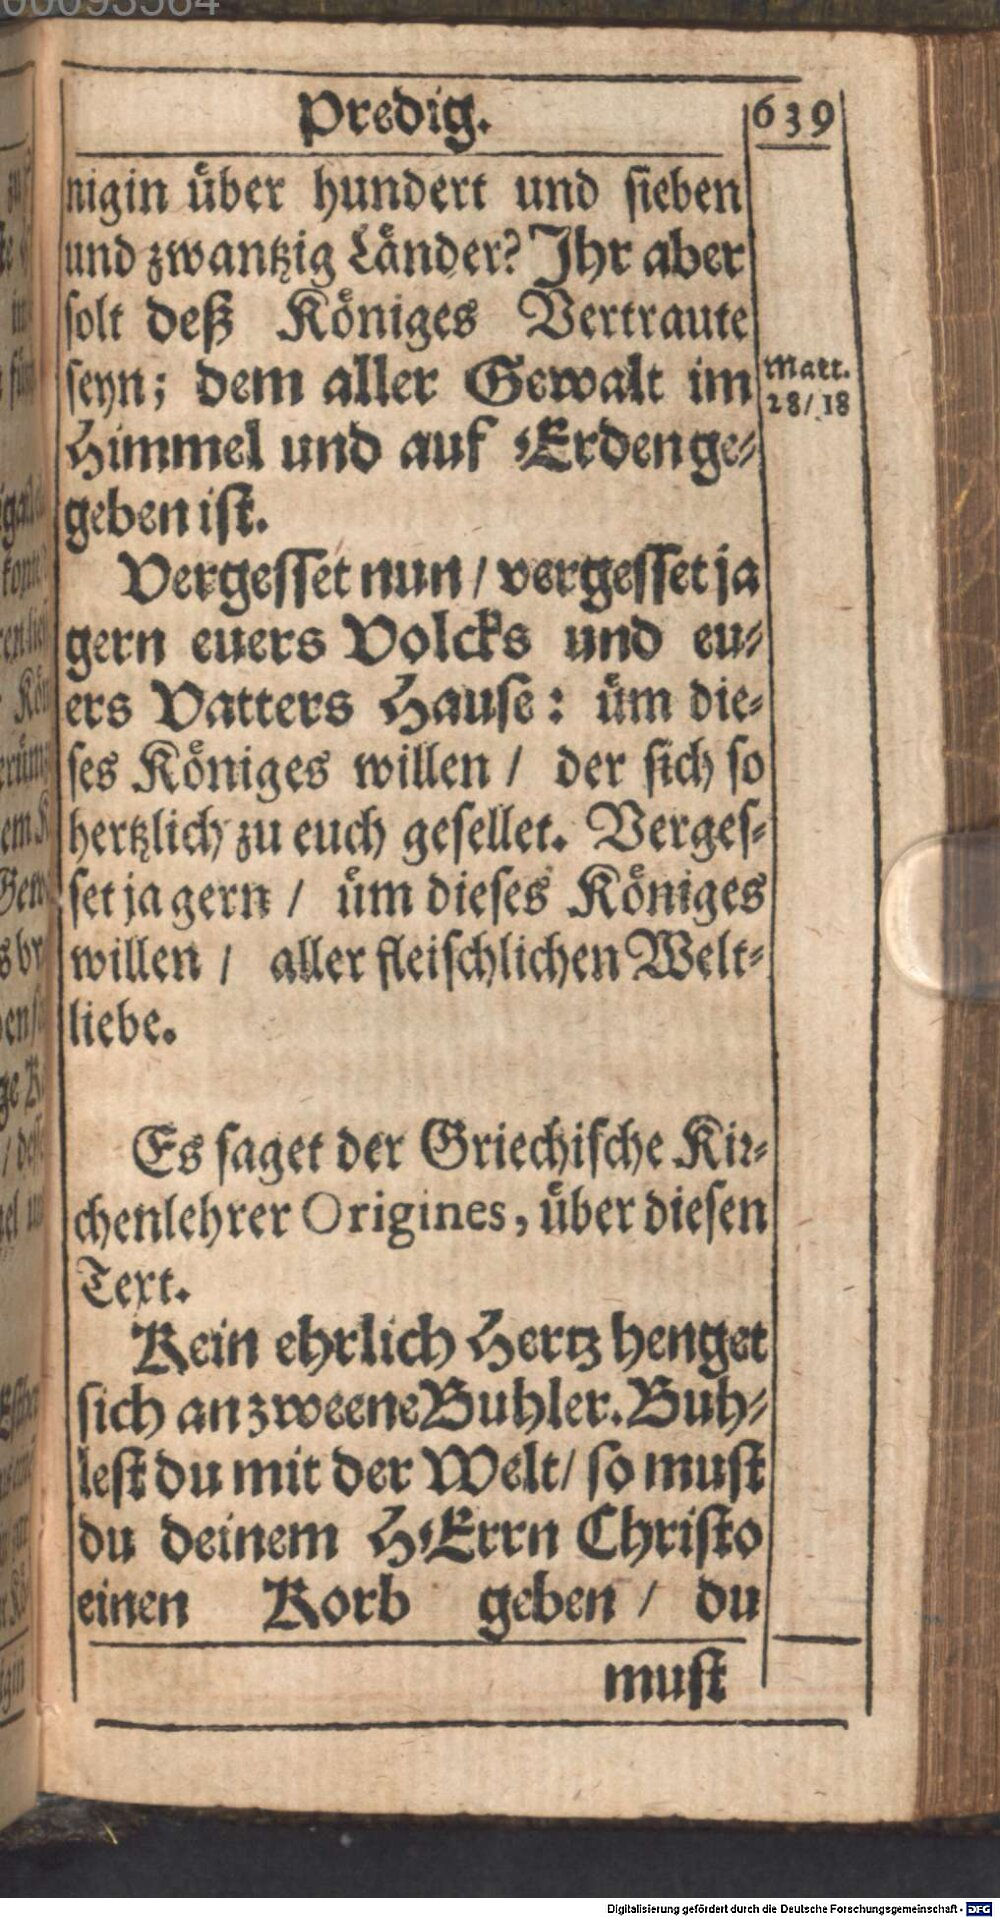 Predig.
639
nigin über hundert und sieben
und zwantzig Länder? Jhr aber
solt deß Königes Vertraute
seyn; dem aller Gewalt im
Himmel und auf Erden ge-
geben ist.
Matt.
28/18
Vergesset nun / vergesset ja
gern euers Volcks und eu-
ers Vatters Hause: üm die-
ses Königes willen / der sich so
hertzlich zu euch gesellet. Verges-
set ja gern / üm dieses Königes
willen / aller fleischlichen Welt-
liebe.
Es saget der Griechische Kir-
chenlehrer Origines, über diesen
Text.
Kein ehrlich Hertz henget
sich an zweene Buhler. Buh-
lest du mit der Welt / so must
du deinem HErrn Christo
einen Korb geben / du
must
Digitalisierung gefördert durch die Deutsche Forschungsgemeinschaft - DFG